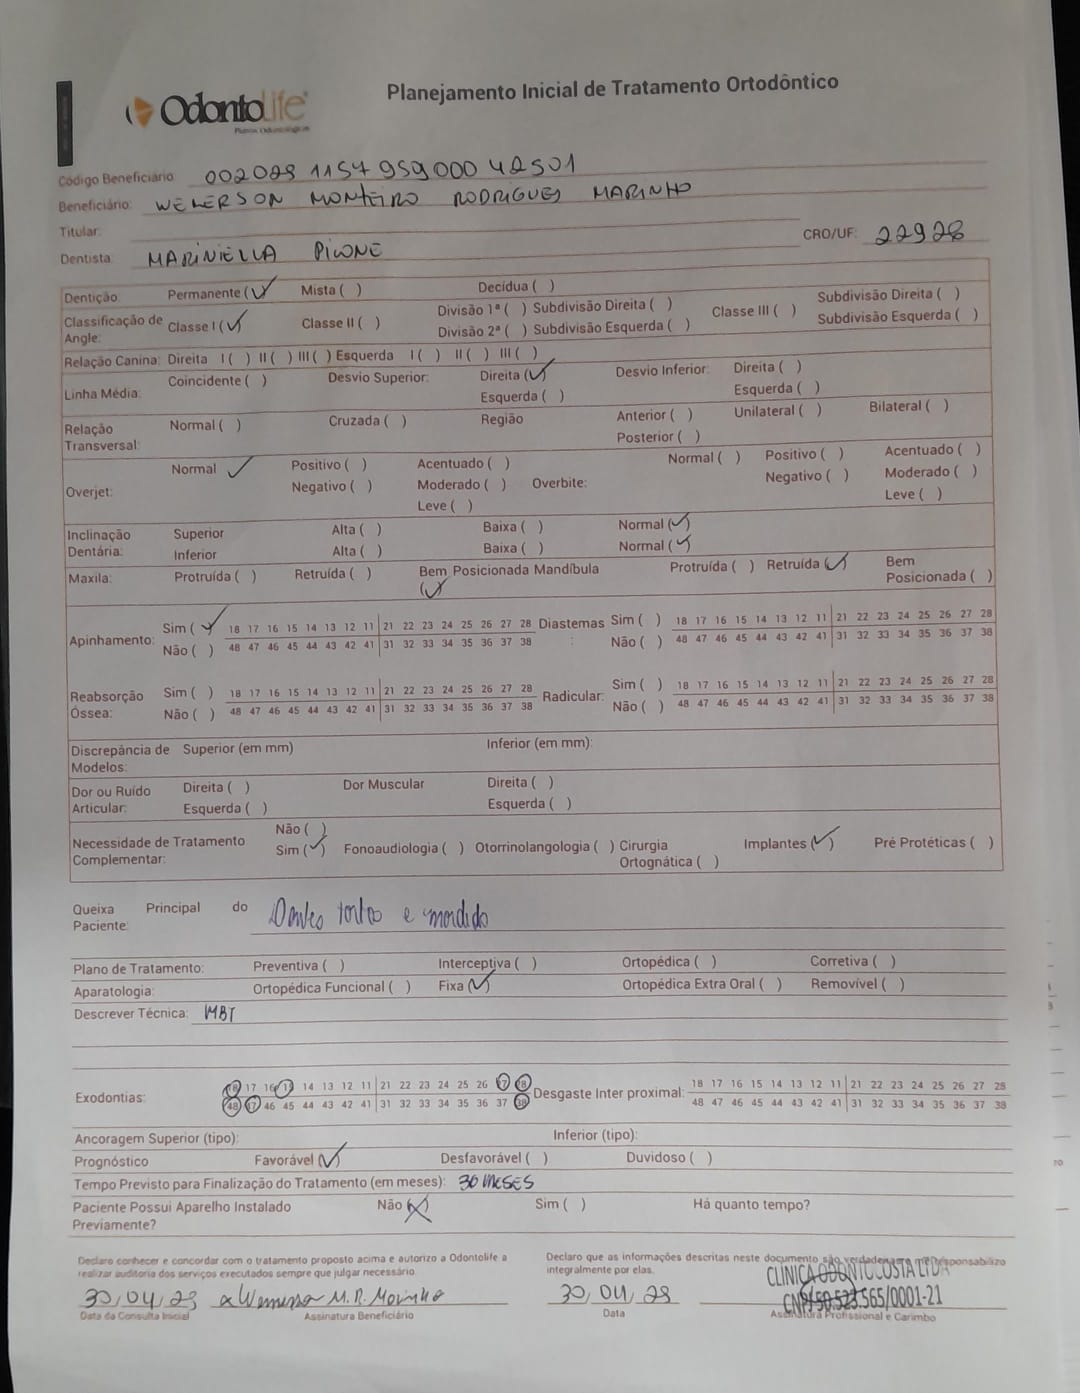 OdontoLife
Planos Odontológicos
Planejamento Inicial de Tratamento Ortodôntico
Código Beneficiário 002029 1157 959000 42501
Beneficiário: WEMERSON MONTEIRO RODRIGUES MARINHO
Titular:
Dentista MARINIELLA PICONE CRO/UF: 22928
Dentição Permanente (✓) Mista ( ) Decídua ( )
Classificação de Angle: Classe I (✓) Classe II ( ) Divisão 1ª ( ) Subdivisão Direita ( ) Classe III ( ) Subdivisão Direita ( )
Divisão 2ª ( ) Subdivisão Esquerda ( ) Subdivisão Esquerda ( )
Relação Canina: Direita I ( ) II ( ) III ( ) Esquerda I ( ) II ( ) III ( )
Linha Média: Coincidente ( ) Desvio Superior: Direita (✓) Desvio Inferior: Direita ( )
Esquerda ( ) Esquerda ( )
Relação Transversal: Normal ( ) Cruzada ( ) Região Anterior ( ) Unilateral ( ) Bilateral ( )
Posterior ( )
Overjet: Normal ✓ Positivo ( ) Acentuado ( ) Overbite: Normal ( ) Positivo ( ) Acentuado ( )
Negativo ( ) Moderado ( ) Negativo ( ) Moderado ( )
Leve ( ) Leve ( )
Inclinação Dentária: Superior Alta ( ) Baixa ( ) Normal (✓)
Inferior Alta ( ) Baixa ( ) Normal (✓)
Maxila: Protruída ( ) Retruída ( ) Bem Posicionada (✓) Mandíbula Protruída ( ) Retruída (✓) Bem Posicionada ( )
Apinhamento: Sim (✓) 18 17 16 15 14 13 12 11 21 22 23 24 25 26 27 28 Diastemas : Sim ( ) 18 17 16 15 14 13 12 11 21 22 23 24 25 26 27 28
Não ( ) 48 47 46 45 44 43 42 41 31 32 33 34 35 36 37 38 Não ( ) 48 47 46 45 44 43 42 41 31 32 33 34 35 36 37 38
Reabsorção Óssea: Sim ( ) 18 17 16 15 14 13 12 11 21 22 23 24 25 26 27 28 Radicular: Sim ( ) 18 17 16 15 14 13 12 11 21 22 23 24 25 26 27 28
Não ( ) 48 47 46 45 44 43 42 41 31 32 33 34 35 36 37 38 Não ( ) 48 47 46 45 44 43 42 41 31 32 33 34 35 36 37 38
Discrepância de Modelos: Superior (em mm) Inferior (em mm):
Dor ou Ruído Articular: Direita ( ) Dor Muscular Direita ( )
Esquerda ( ) Esquerda ( )
Necessidade de Tratamento Complementar: Não ( )
Sim (✓) Fonoaudiologia ( ) Otorrinolangologia ( ) Cirurgia Ortognática ( ) Implantes (✓) Pré Protéticas ( )
Queixa Principal do Paciente: Dentes tortos e mordida
Plano de Tratamento: Preventiva ( ) Interceptiva ( ) Ortopédica ( ) Corretiva ( )
Aparatologia: Ortopédica Funcional ( ) Fixa (✓) Ortopédica Extra Oral ( ) Removível ( )
Descrever Técnica: MBT
Exodontias: 18 17 16 15 14 13 12 11 21 22 23 24 25 26 27 28 Desgaste Inter proximal: 18 17 16 15 14 13 12 11 21 22 23 24 25 26 27 28
48 47 46 45 44 43 42 41 31 32 33 34 35 36 37 38 48 47 46 45 44 43 42 41 31 32 33 34 35 36 37 38
Ancoragem Superior (tipo): Inferior (tipo):
Prognóstico Favorável (✓) Desfavorável ( ) Duvidoso ( )
Tempo Previsto para Finalização do Tratamento (em meses): 36 MESES
Paciente Possui Aparelho Instalado Previamente? Não (X) Sim ( ) Há quanto tempo?
Declaro conhecer e concordar com o tratamento proposto acima e autorizo a Odontolife a
realizar auditoria dos serviços executados sempre que julgar necessário.
Declaro que as informações descritas neste documento são verdadeiras e me responsabilizo
integralmente por elas.
30/04/23 x Wemerson M. R. Marinho 30/04/23
CLINICA ODONTO COSTA LTDA
CNPJ 50.523.565/0001-21
Data da Consulta Inicial Assinatura Beneficiário Data Assinatura Profissional e Carimbo